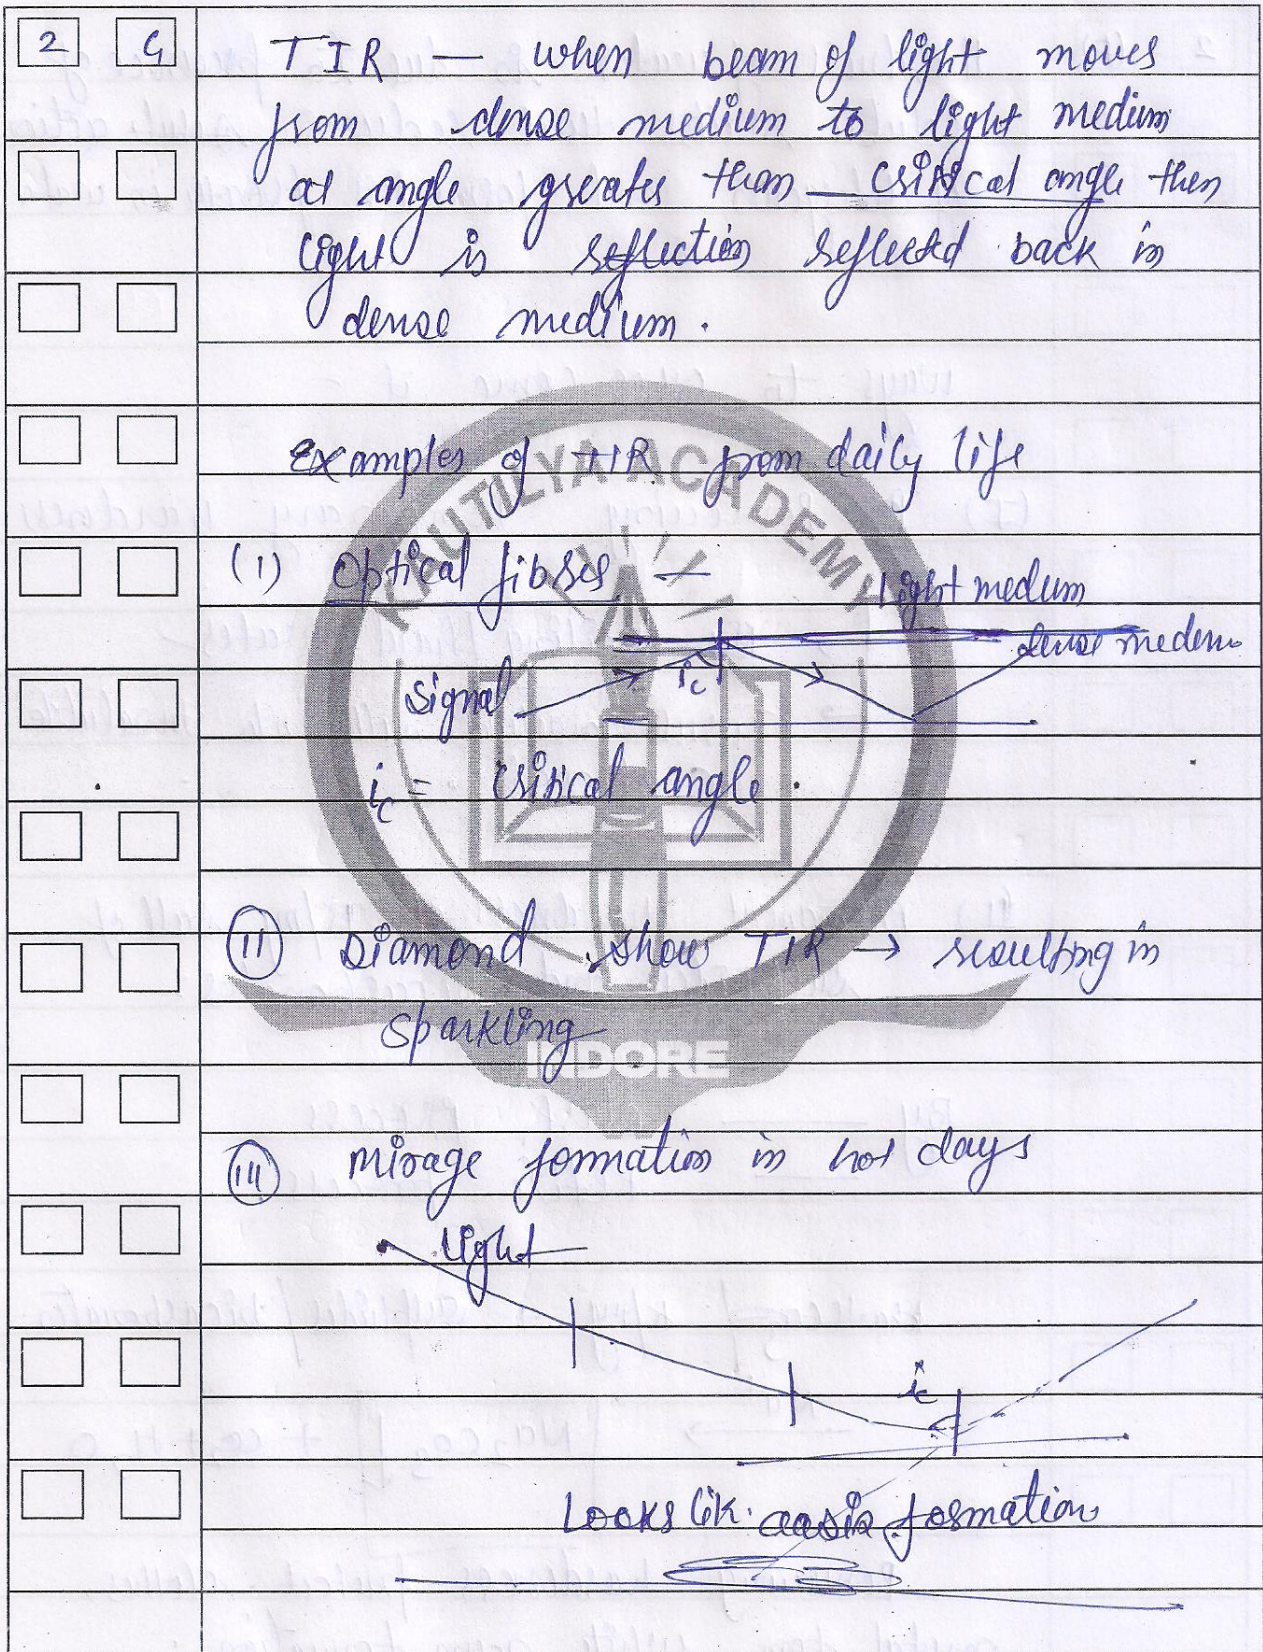 2 G
TIR — when beam of light moves
from dense medium to light medium
at angle greater than critical angle then
light is reflection reflected back in
dense medium.
Examples of TIR from daily life
(1) Optical fibres —
light medum
dense medem
signal
ic
ic = critical angle.
(11) Diamond show TIR → resulting in
sparkling
(111) Mirage formation in hot days
light
ic
Looks lik. oasis formation
KAUTILYA ACADEMY
INDORE